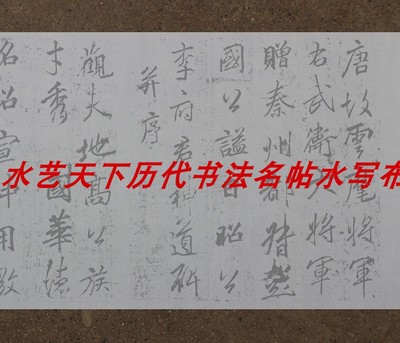 唐故雲麾將軍
右武衛大將軍
贈秦州都督彭
國公謚曰昭公
李府君神道碑
并序
觀夫地高公族
才秀國華德
名昭宣用
水艺天下历代书法名帖水写布